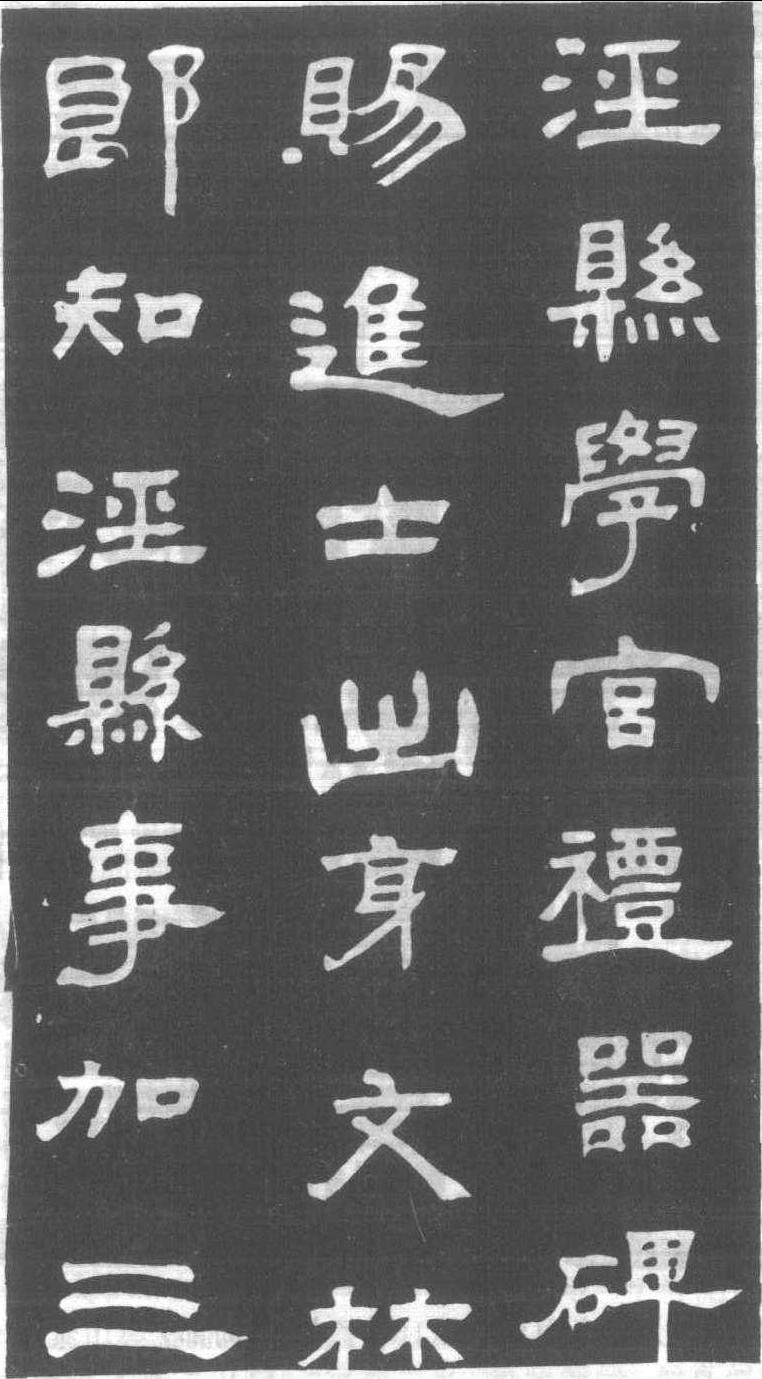 涇縣學官禮器碑
賜進士出身文林
郎知涇縣事加三